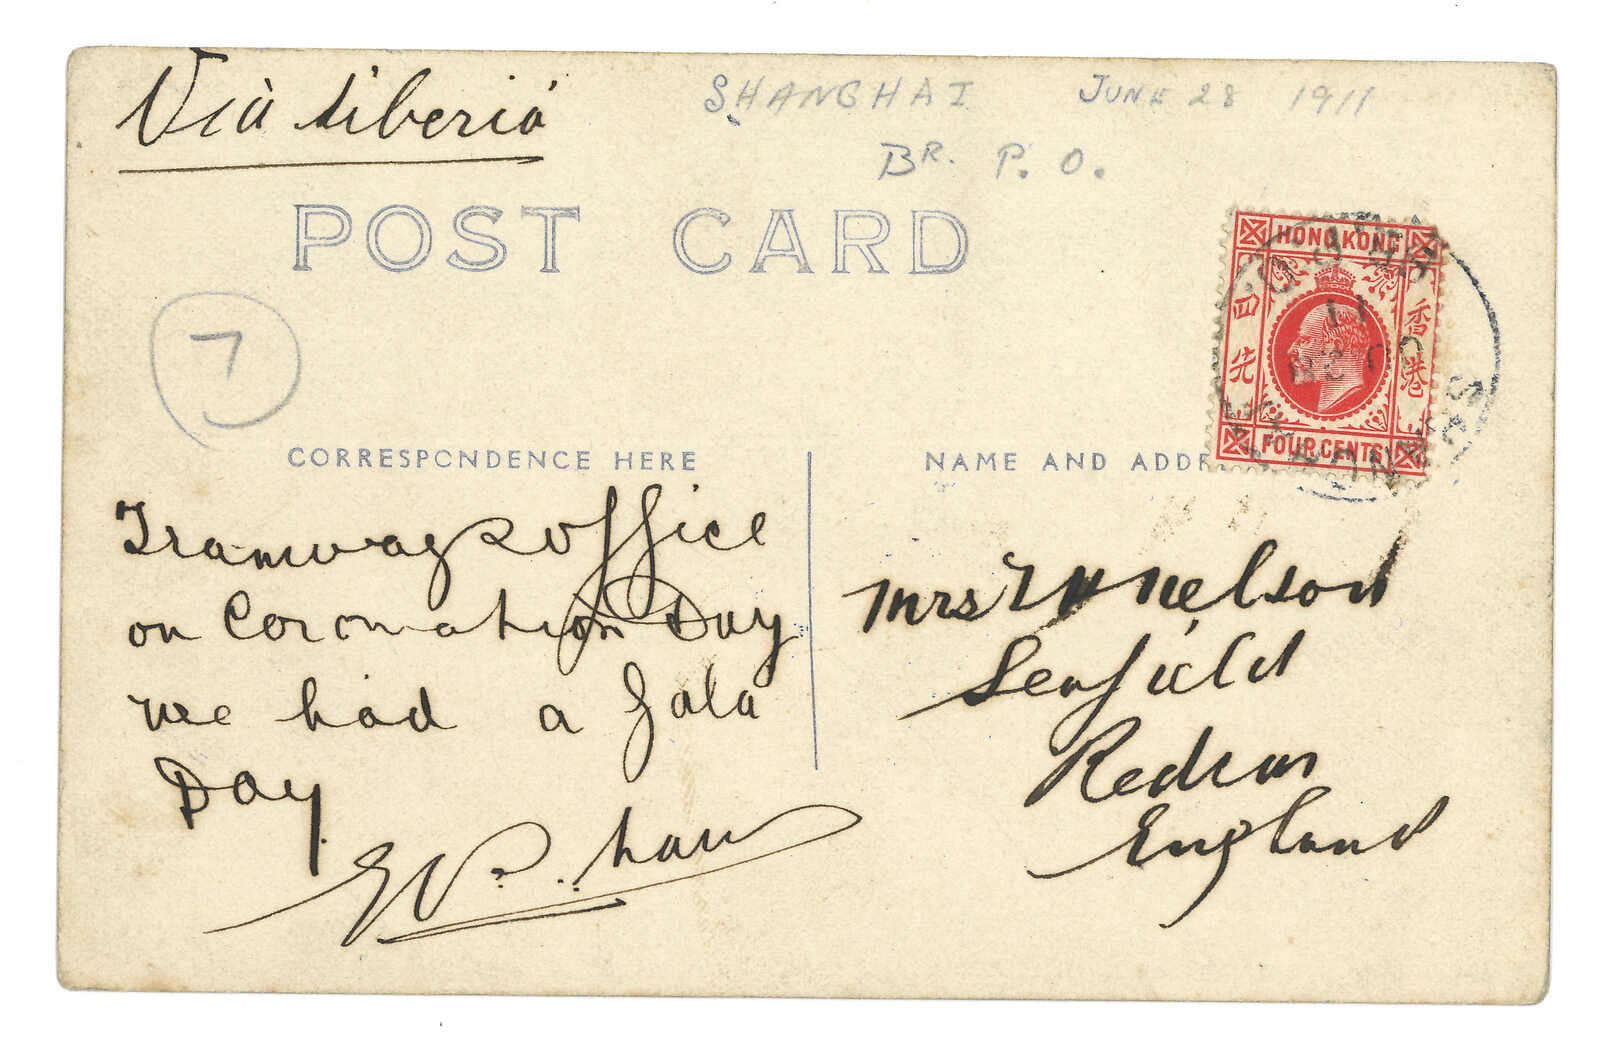 Via Siberia
SHANGHAI JUNE 28 1911
BR. P. O.
POST CARD
HONG KONG
四先
香港
FOUR CENTS
7
CORRESPONDENCE HERE
NAME AND ADDR
Tramways office
on Coronation Day
we had a gala
Day
Mrs T H Nelson
Seafield
Redcar
England